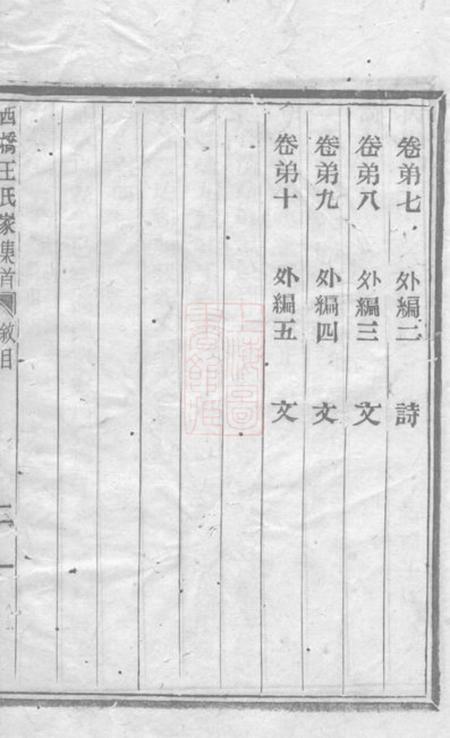 卷弟七 外編二 詩
卷弟八 外編三 文
卷弟九 外編四 文
卷弟十 外編五 文
西橋王氏家集首 敘目 二
上海圖書館藏